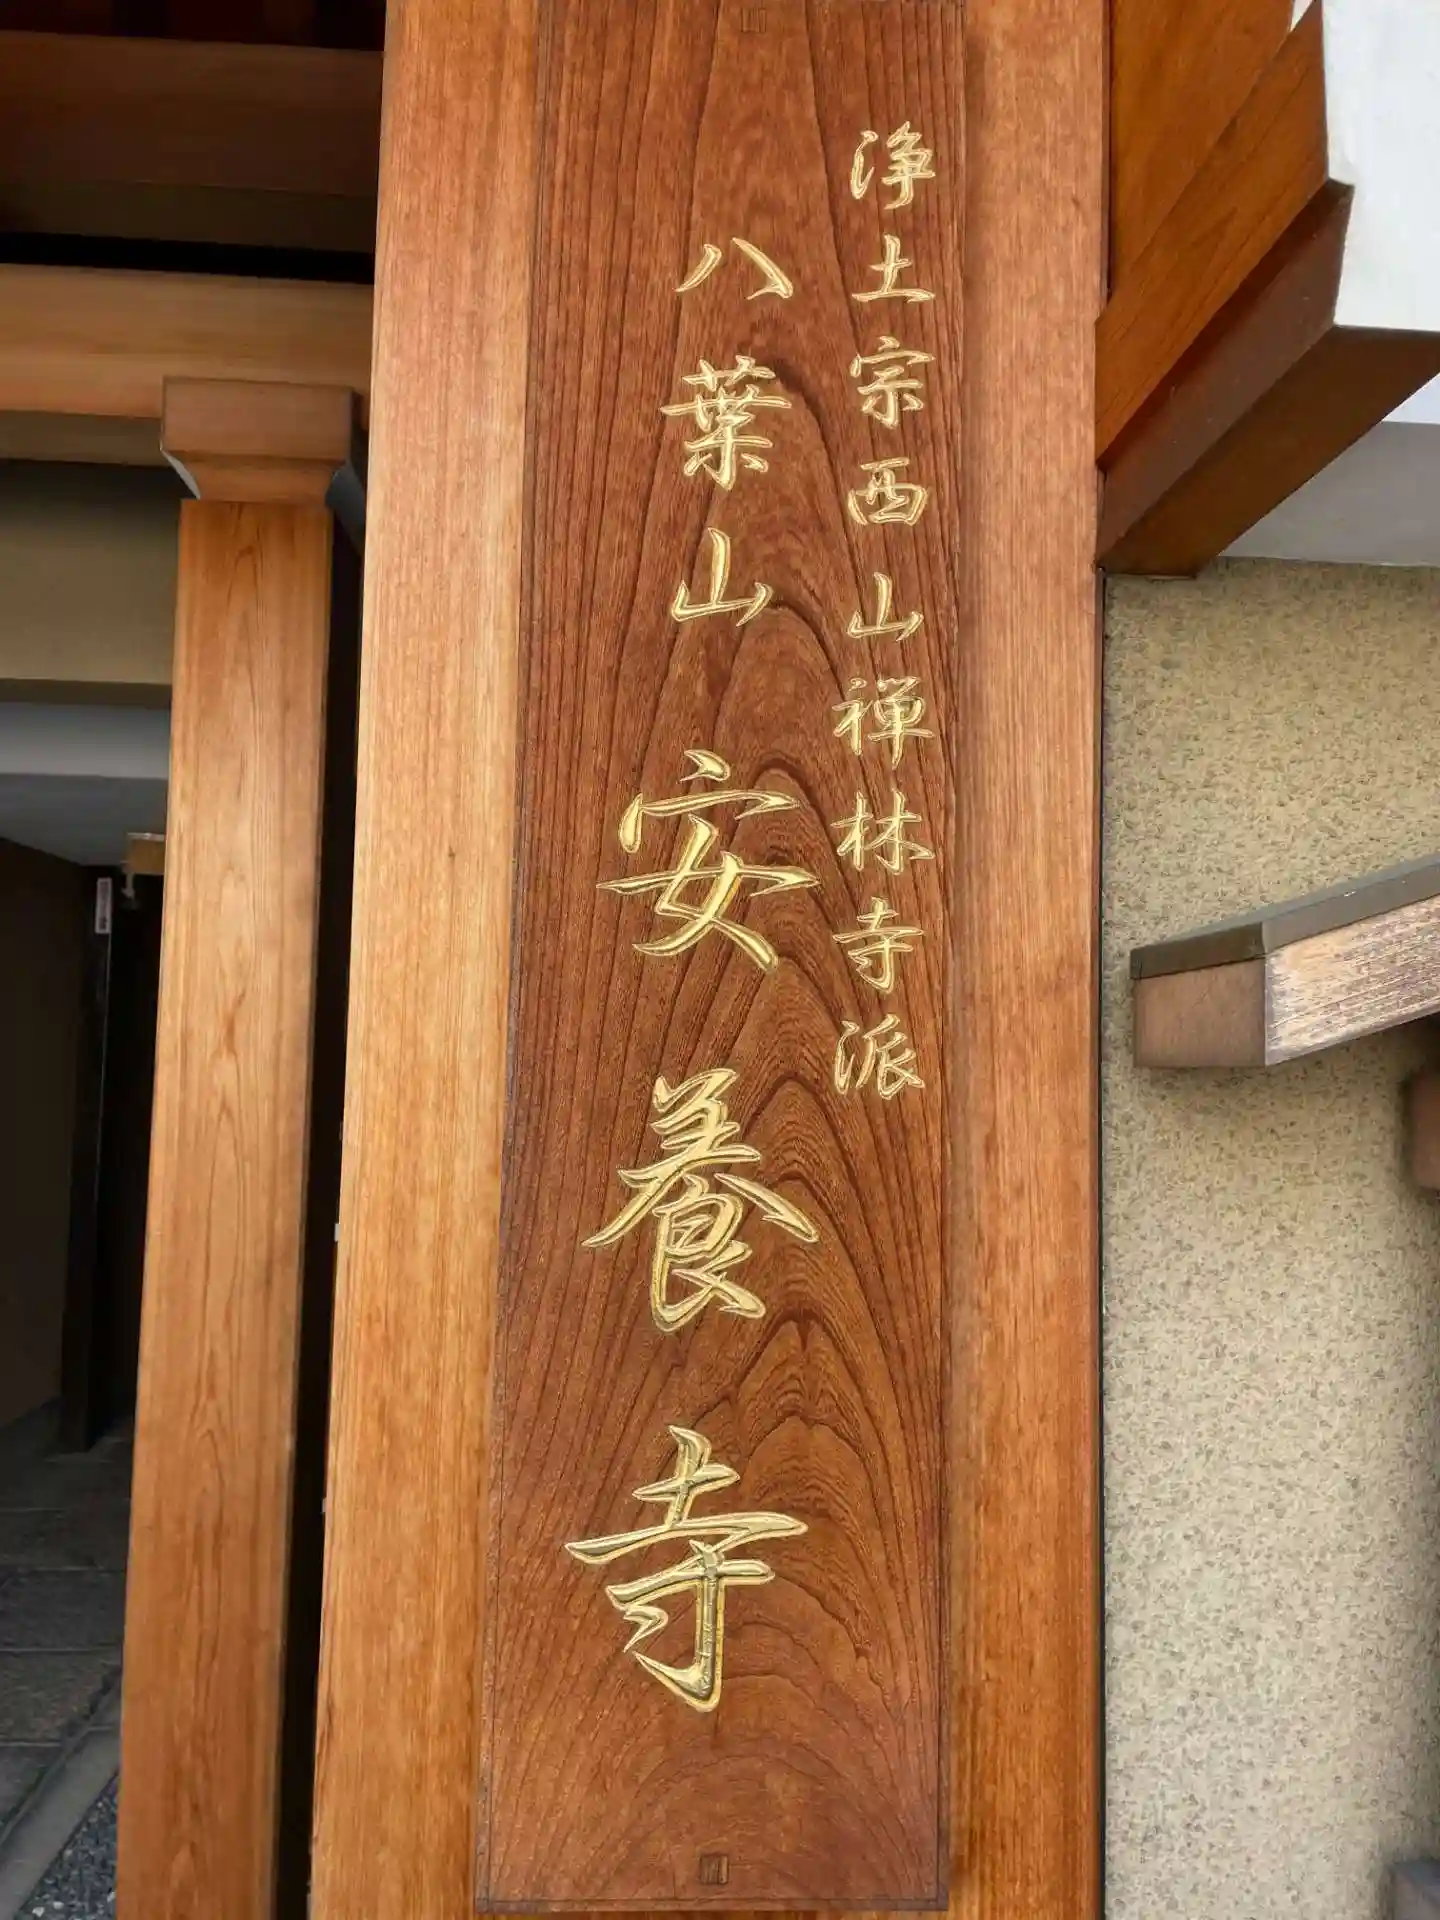 浄土宗西山禅林寺派
八葉山安養寺